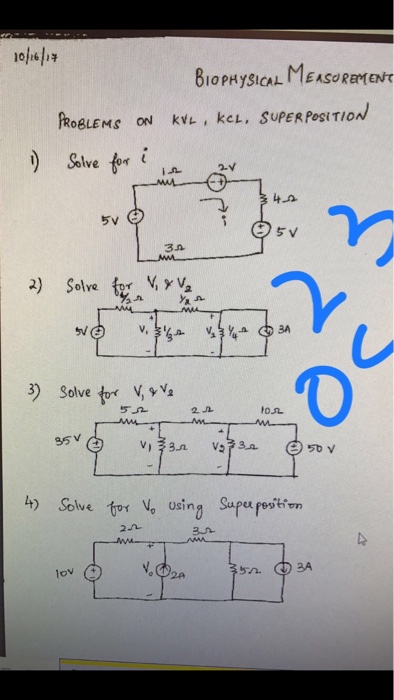 10/16/17
BIOPHYSICAL MEASUREMENT
PROBLEMS ON KVL, KCL, SUPERPOSITION
1) Solve for i
1Ω 2V
- +
4Ω
5V + - i + - 5V
3Ω
2) Solve for V₁ & V₂
1/2 Ω
5V + - + V₁ - 1/3 Ω + V₂ - 1/4 Ω 3A
3) Solve for V₁ & V₂
5Ω 2Ω 10Ω
35V + - + V₁ - 3Ω + V₂ - 3Ω + - 50 V
4) Solve for V₀ using Superposition
2Ω 3Ω
10V + - + V₀ - 2A 5Ω 3A